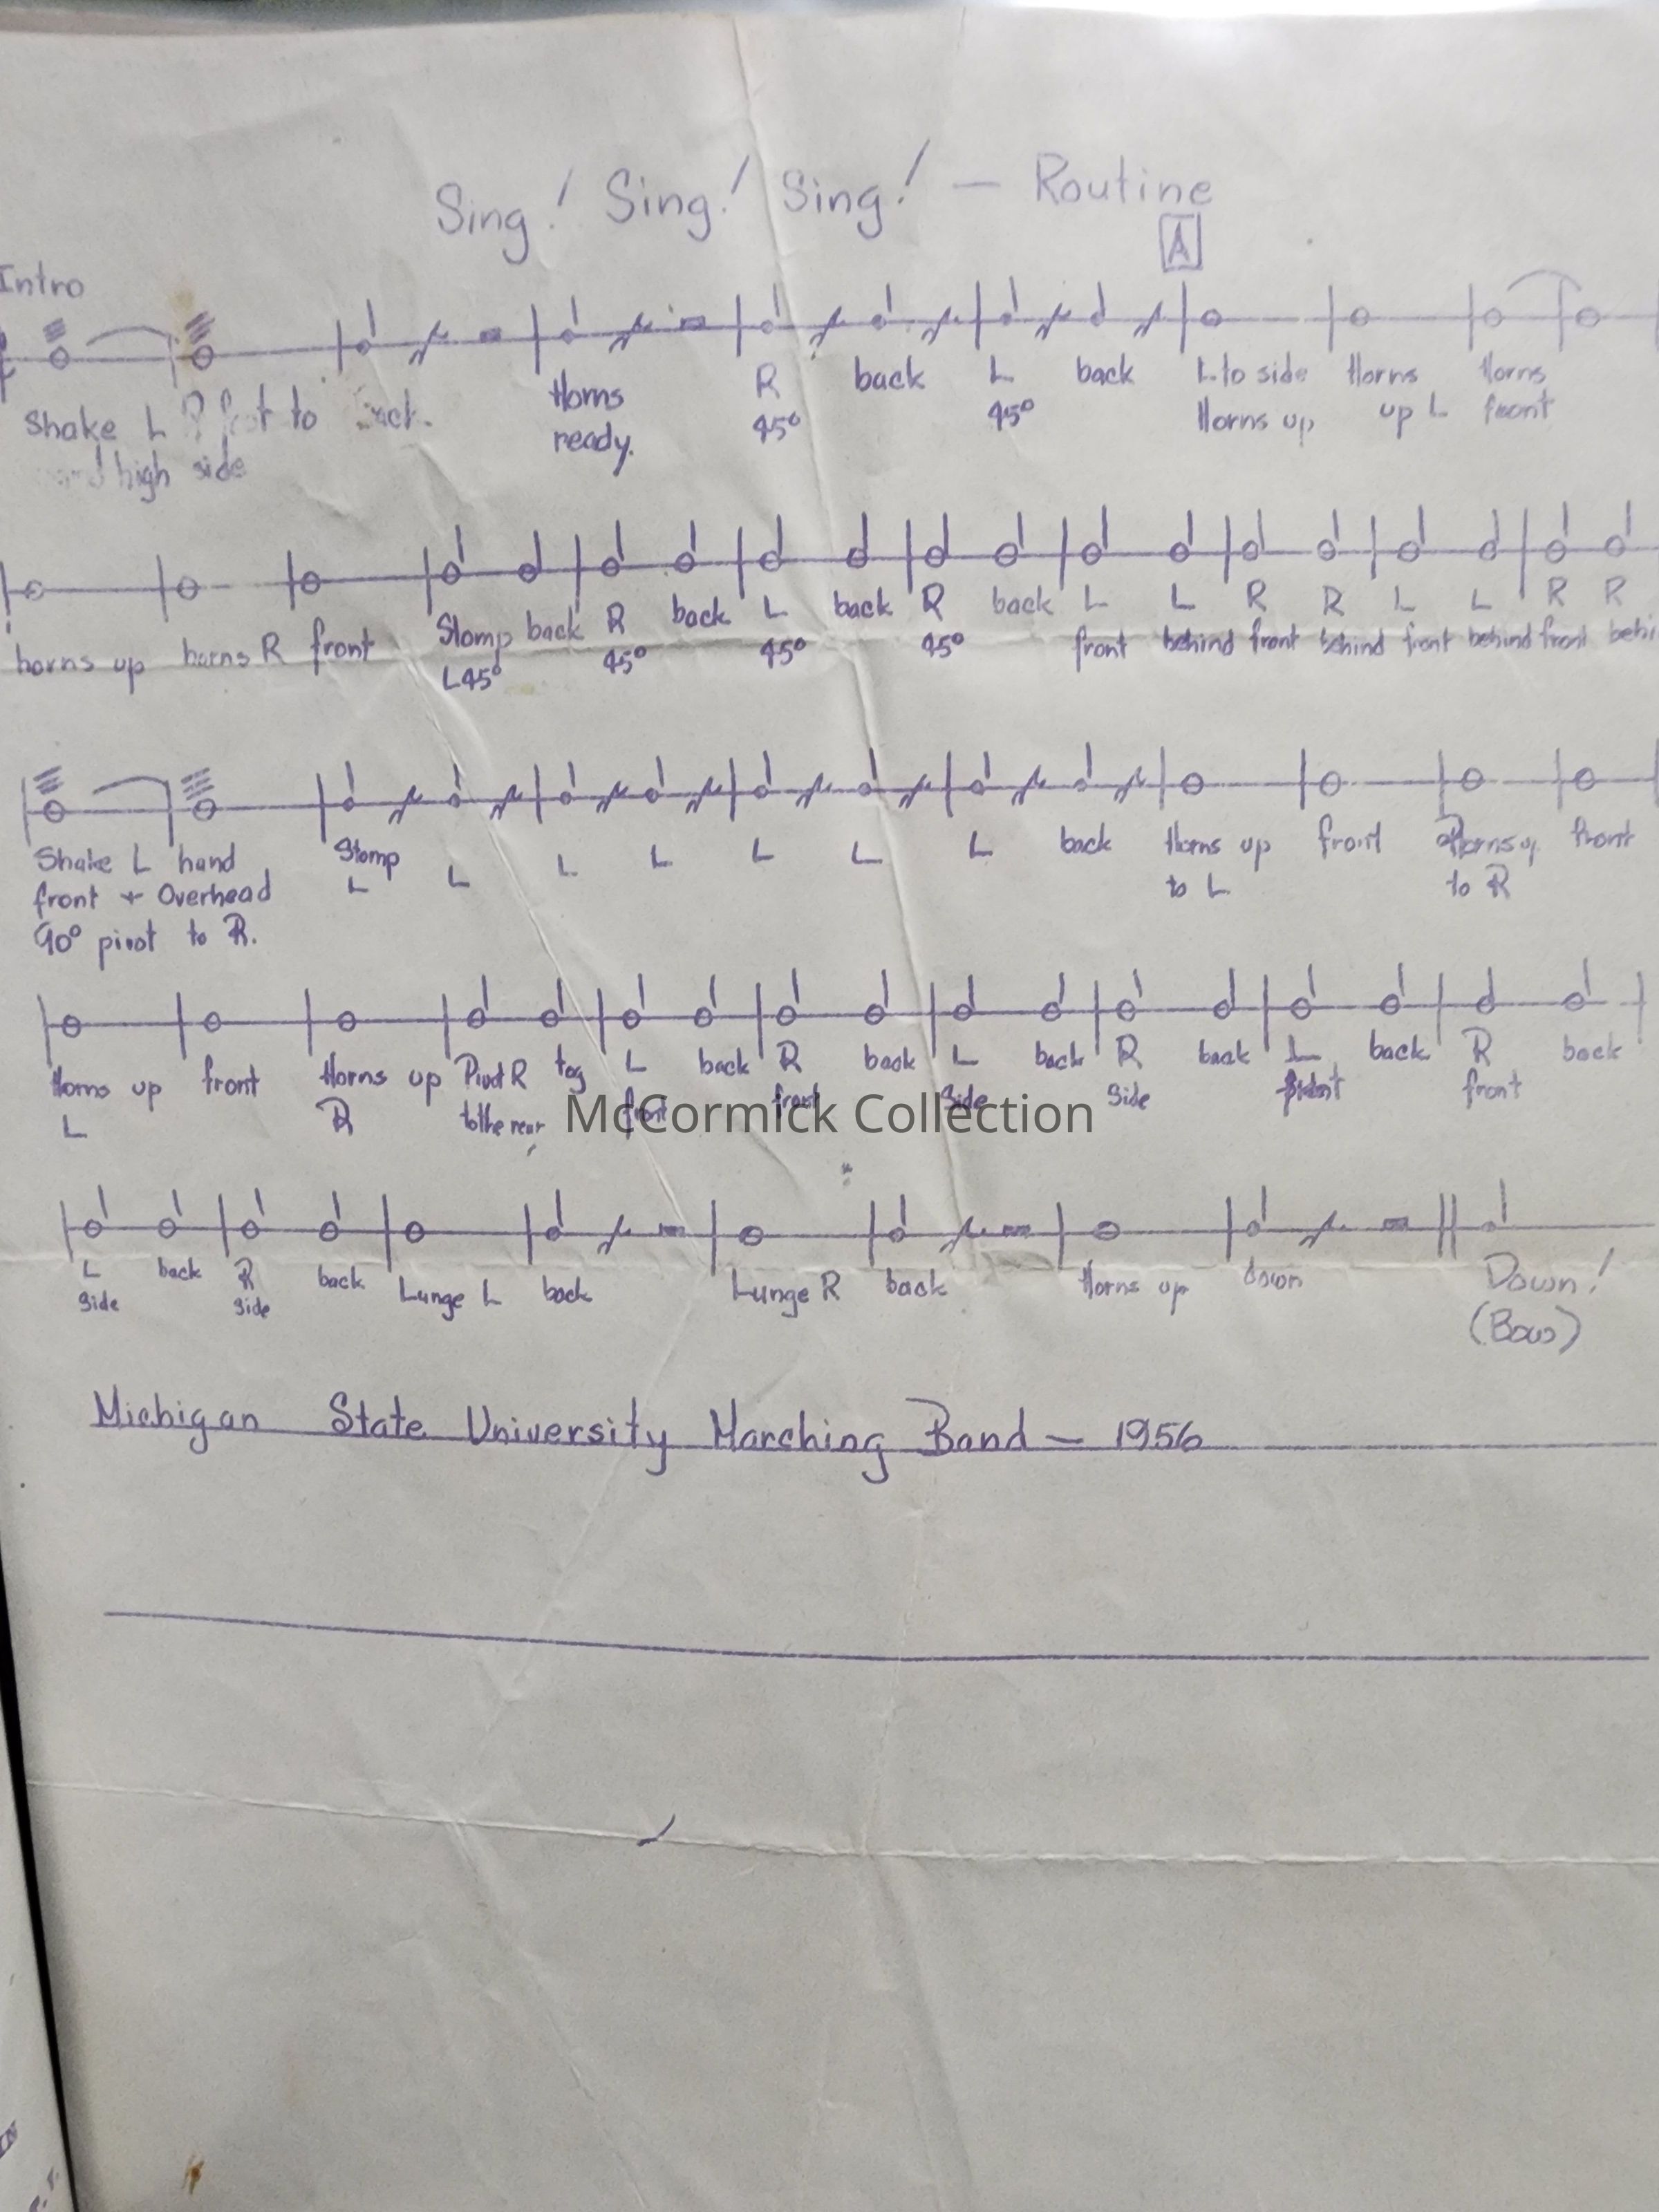 Sing! Sing! Sing! — Routine
A
Intro
Shake L foot to
high side
Horns ready.
R 45° back L 45° back L to side Horns up Horns up L Horns front
horns up horns R front Stomp L 45° back R 45° back L 45° back R 45° back L front L behind R front R behind L front L behind R front R behi
Shake L hand
front + Overhead
90° pivot to R.
Stomp L L L L L L L back Horns up to L front to R front
Horns up L front Horns up R Pivot R to the rear tog L front back R front back L Side back R Side back L back R front back
L Side back R Side back Lunge L back Lunge R back Horns up down Down! (Bow)
McCormick Collection
Michigan State University Marching Band — 1956